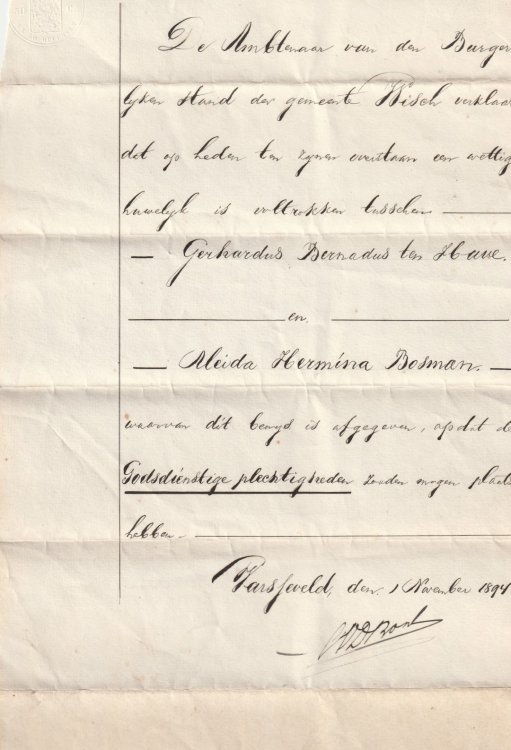 De Ambtenaar van den Burger
lijken stand der gemeente Wisch verklaar
dat op heden ten zijnen overstaan een wettig
huwelijk is voltrokken tusschen
— Gerhardus Bernadus ten Have.
en
— Aleida Hermina Bosman. —
waarvan dit bewijs is afgegeven, opdat d
Godsdienstige plechtigheden zouden mogen plaat
hebben.
Varsseveld, den 1 November 1894